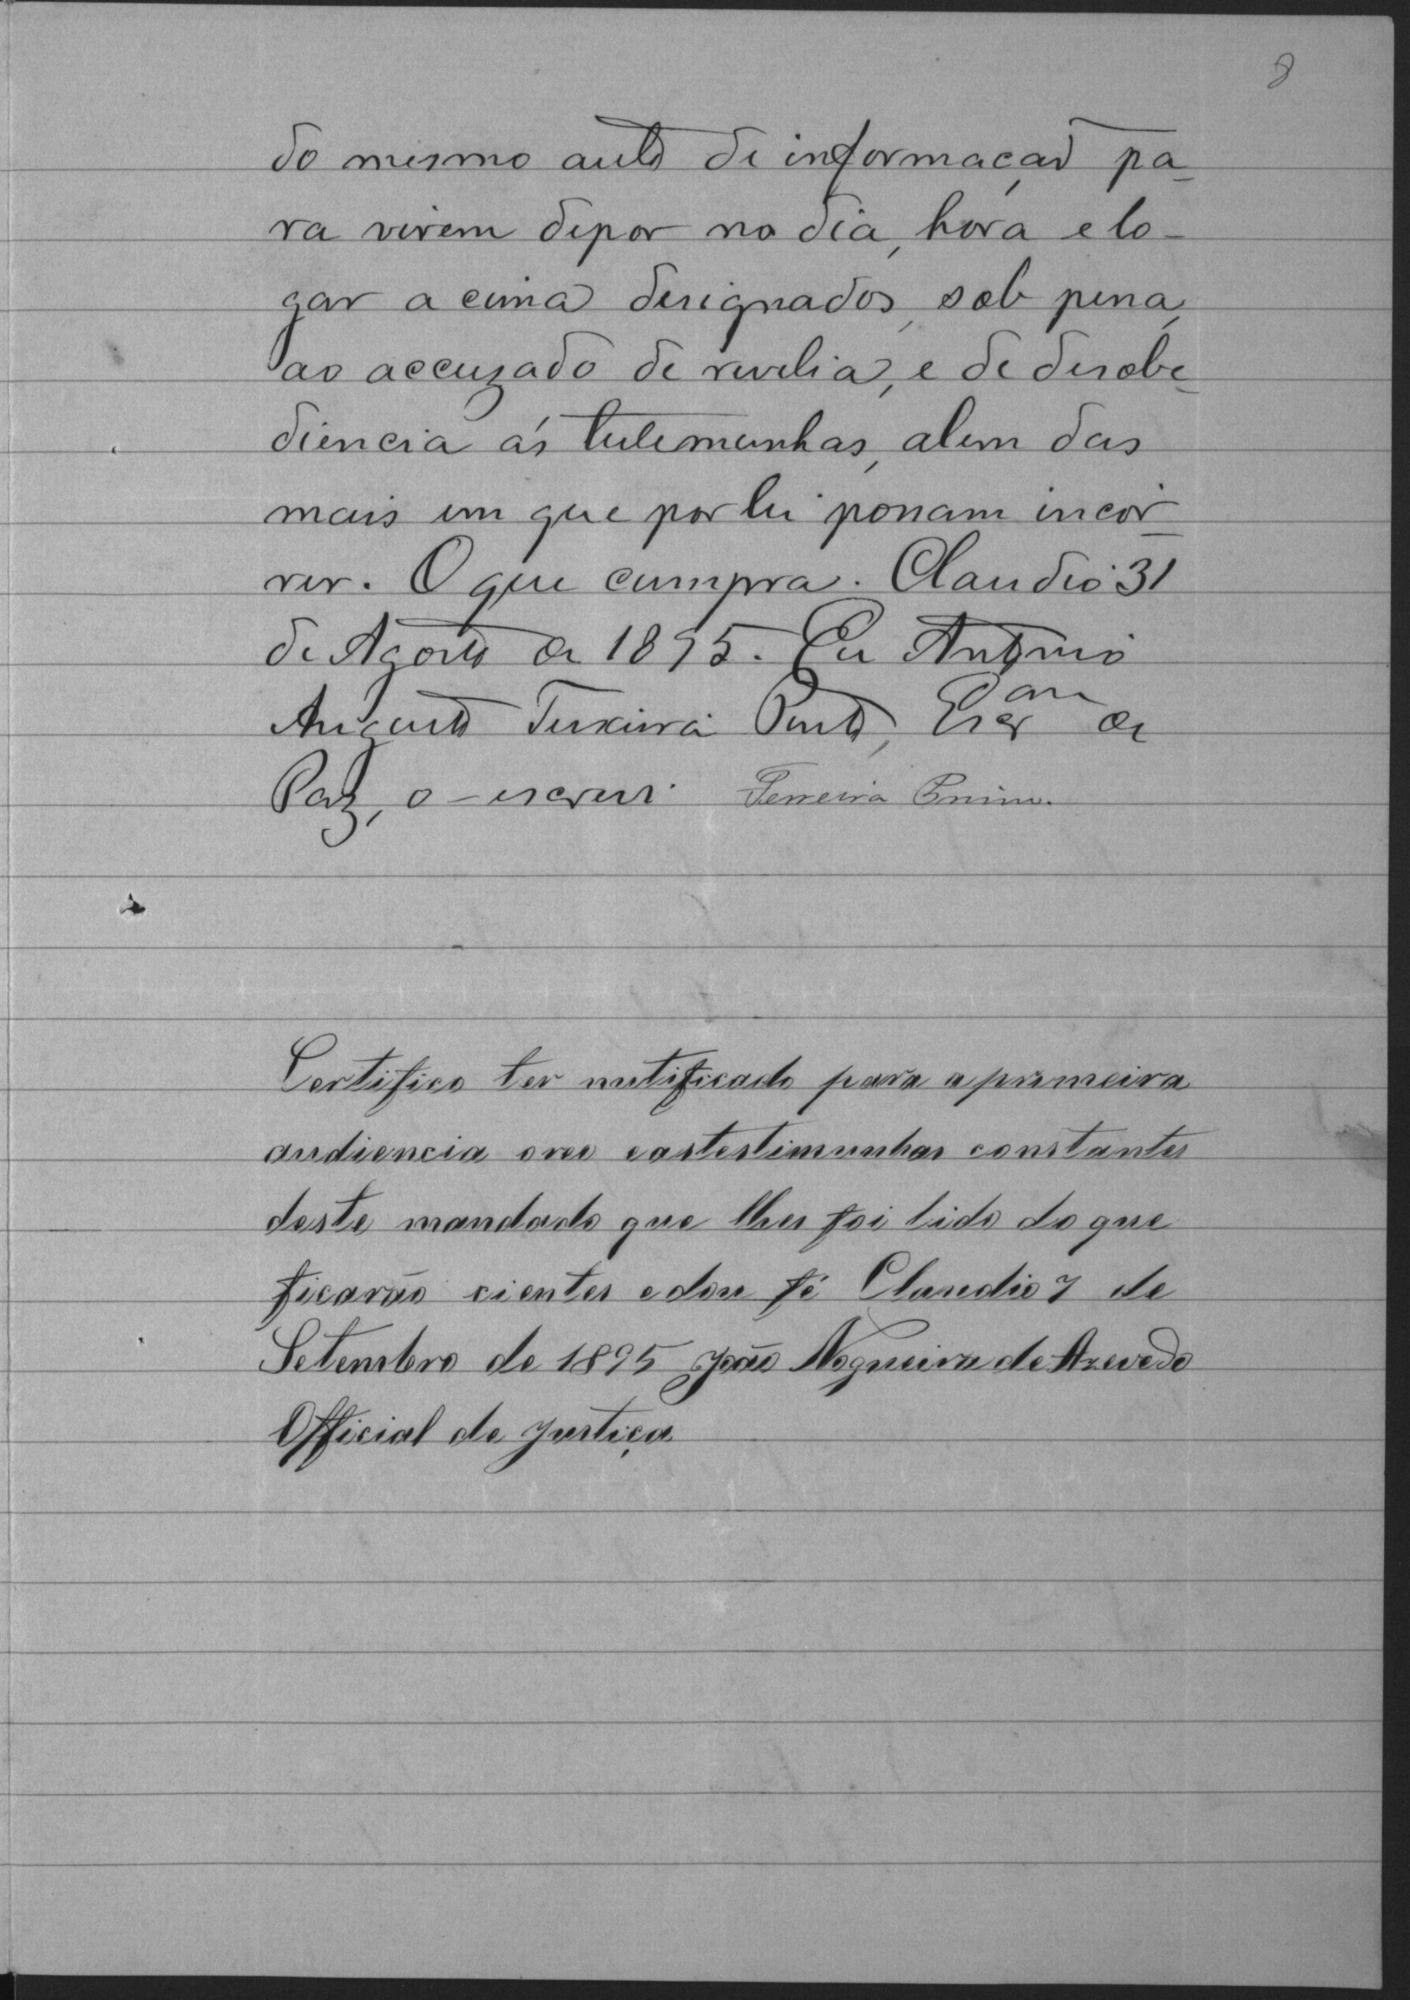 8
do mesmo auto de informaçaõ pa-
ra virem depor no dia, hora e lo-
gar a cima designados, sob pena,
ao accuzado de revelia, e de desobe-
diencia ás testemunhas, alem das
mais em que por lei possam incor-
rer. O que cumpra. Claudio 31
de Agosto de 1895. Eu Antonio
Augusto Teixeira Pinto, Escr.am de
Paz, o-escrevi. Ferreira
Certifico ter nutificado para a primeira
audiencia o reo e as testimunhas constantes
deste mandado que lhes foi lido do que
ficarão cientes e dou fé Claudio 7 de
Setembro de 1895 João Nogueira de Azevedo
Official de Justiça